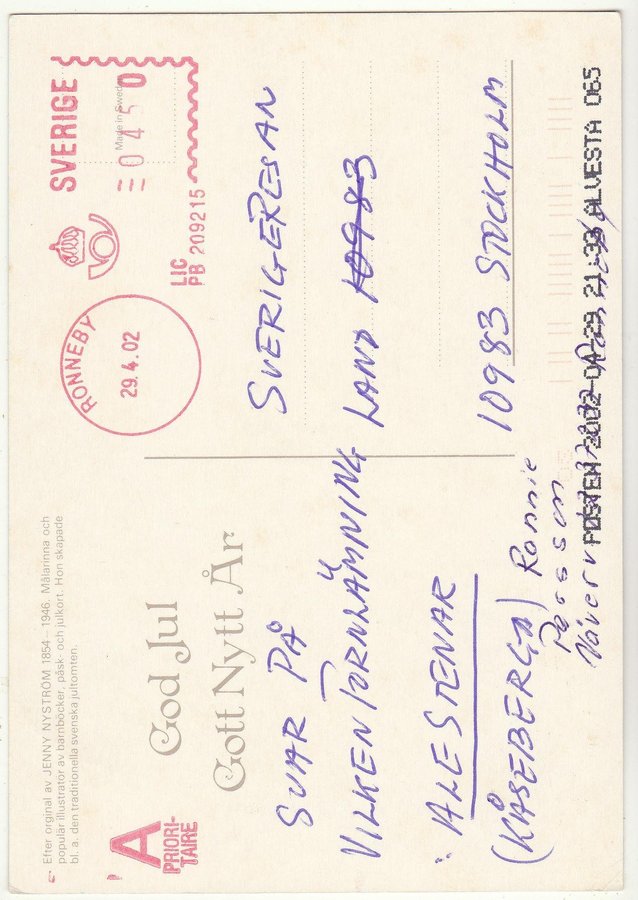 Efter orginal av JENNY NYSTRÖM 1854–1946. Målarinna och
populär illustratör av barnböcker, påsk- och julkort. Hon skapade
bl. a. den traditionella svenska jultomten.
A
PRIORI-
TAIRE
God Jul
Gott Nytt År
SVAR PÅ
VILKEN FORNLÄMNING
: ALESTENAR
(KÅSEBERGA)
Ronnie
RONNEBY
29.4.02
LIC
PB 209215
SVERIGE
0450
Made in Sweden
SVERIGERESAN
LAND 10983
10983 STOCKHOLM
POSTEN 2002-04-29 21:33 ALVESTA 065